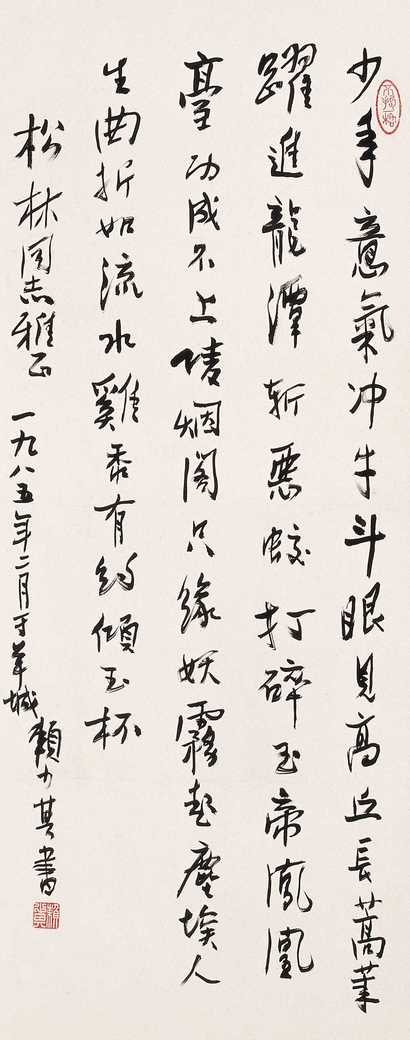 少年意氣冲牛斗眼見高丘長蒿萊
躍進龍潭斬惡蛟打碎玉帝鳳凰
臺功成不上凌烟閣只緣妖霧起塵埃人
生曲折如流水雞黍有約傾玉杯
松林同志雅正 一九八五年二月于羊城 賴少其書